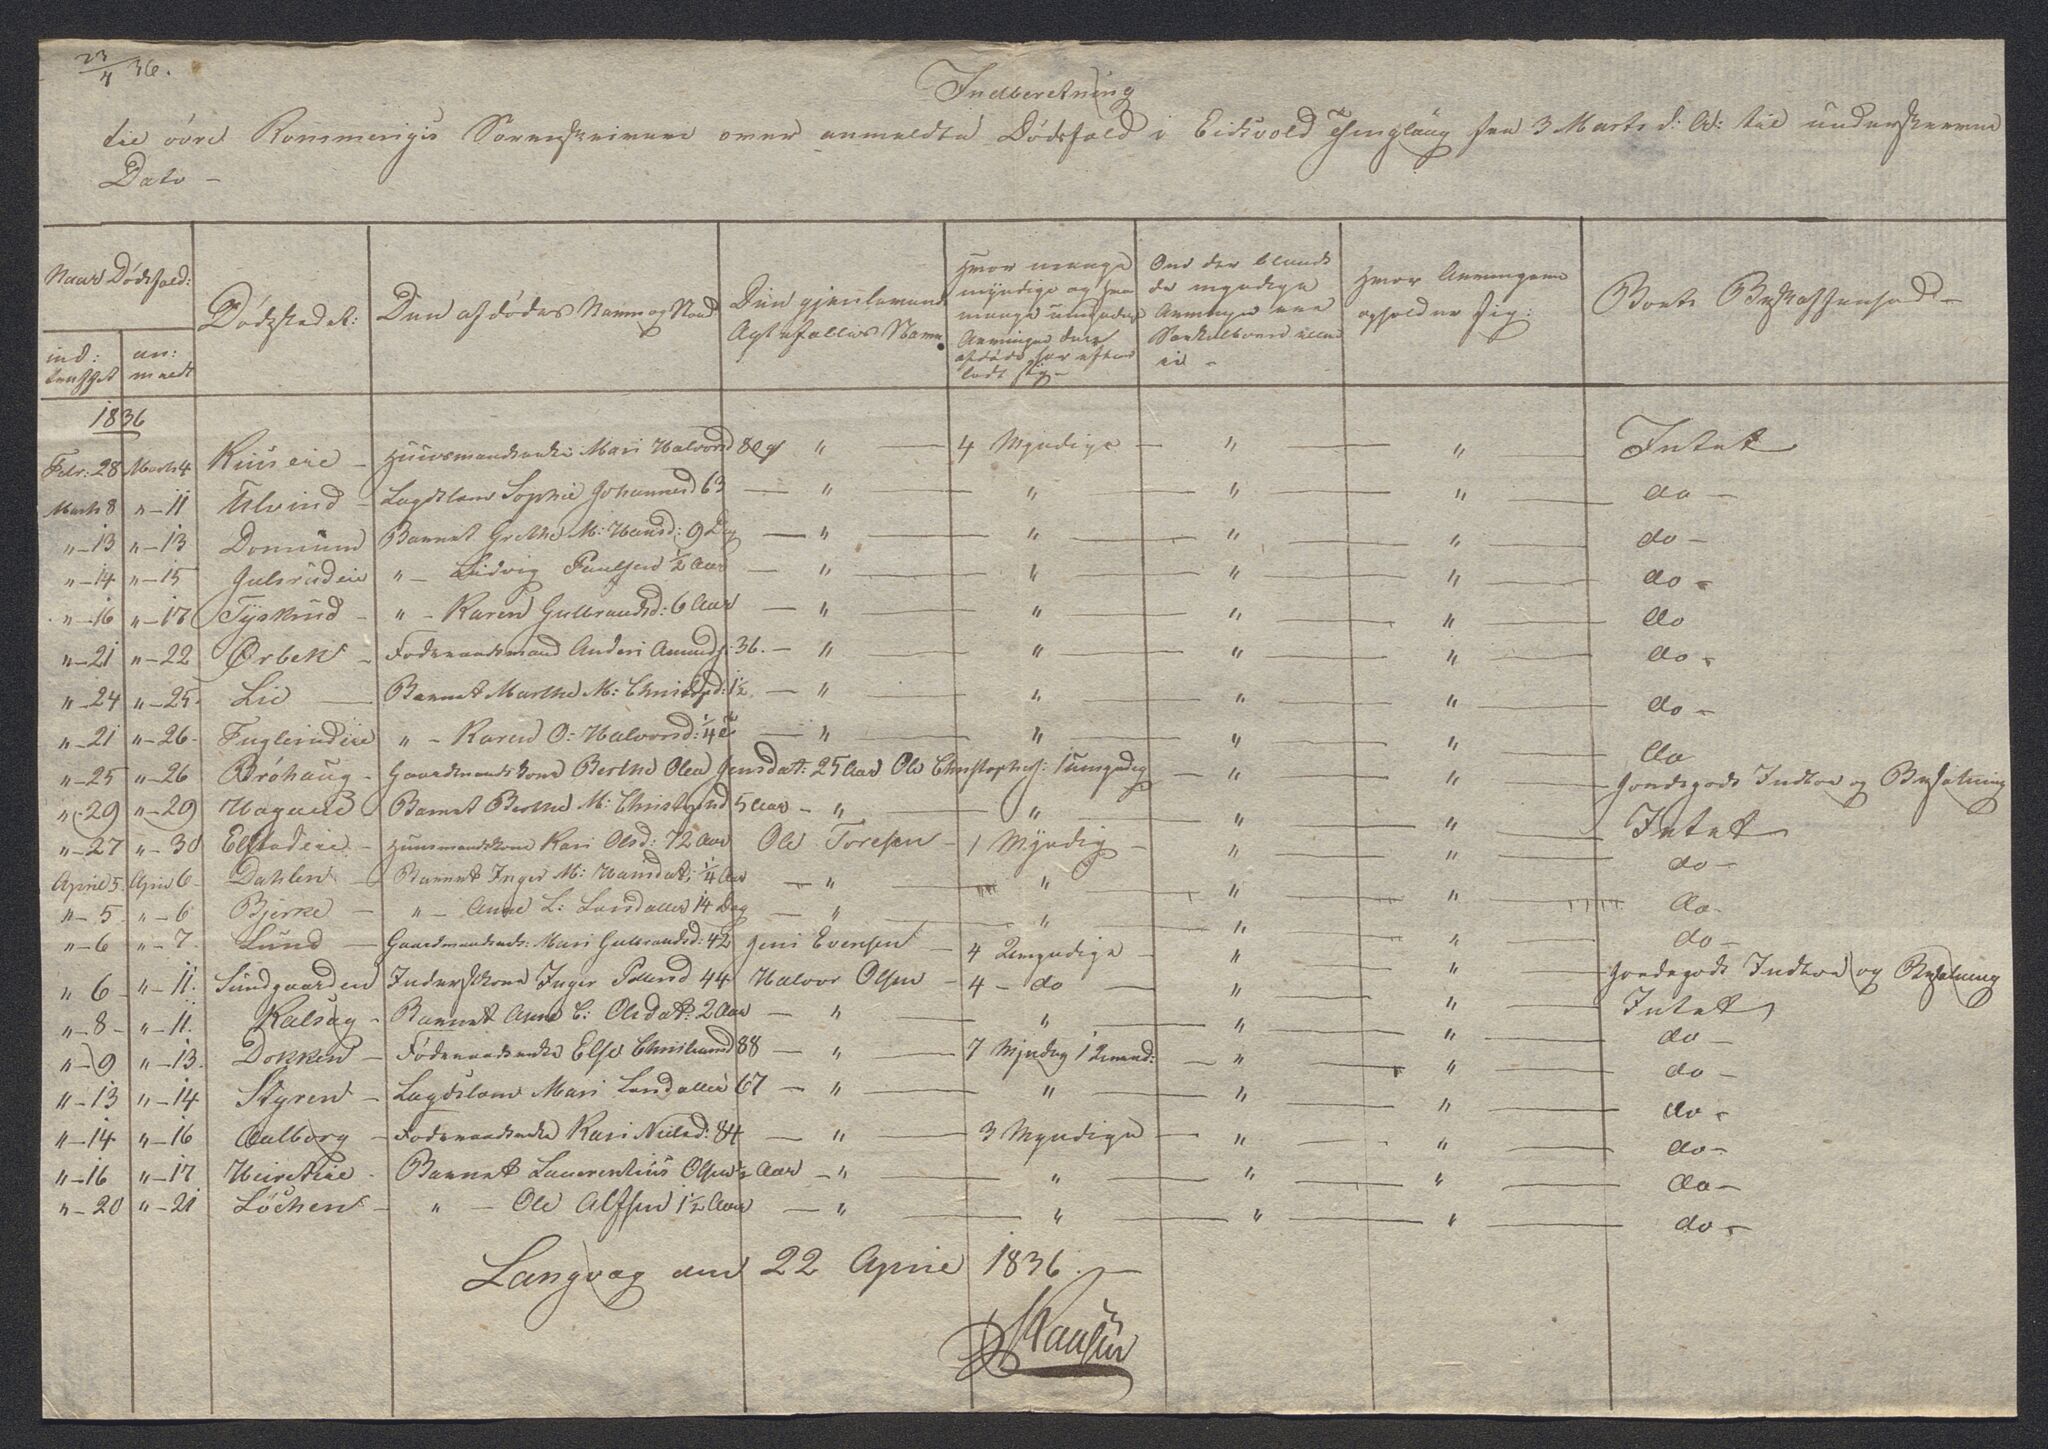 23/4 36.
Indberetning
til övre Rommerigs Sorenskriveri over anmeldte Dödsfald i Eidsvold Thinglaug fra 3 Marts d: A: til underskrevne
Dato –
Naar Dödsfald:
ind: truffet
an: meldt
Dödsstedet:
Den afdödes Navn og Stand
Den gjenlevende Ægtefælles Navn.
Hvor mange myndige og hvor mange umyndige Arvinger den afdöde har efterladt sig –
Om der blandt de myndige Arvinger ere Vankelboren eller ei –
Hvor Arvingerne opholder sig:
Boets Beskaffenhed –
1836
Febr: 28 Marts 4 – Huusmandsenke Mari Halvorsd 80 " — 4 Myndige — " — " Intet
Marts 8 "–11 Ulvind – Lægdslem Sophie Johannesd 63 — " — " — " — " do –
"–13 "–13 Dommen Barnet Grethe M: Hansd: 9 Dag — " — " — " — " do –
"–14 "–15 Gulsrudeie "– Ludvig Paulsen 1/2 Aar — " — " — " — " do –
"–16 "–17 Tyskrud – "– Karen Gulbrandsd: 6 Aar — " — " — " — " do
"–21 "–22 Ørbek – Föderaadsmand Anders Amunds: 36. – " — " — " — " do –
"–24 "–25 Lie — Barnet Marthe M: Christophd: 1 1/2 — " — " — " — " do –
"–21 "–26 Fuglerudeie "– Karen O: Halvorsd: 1/4 — " — " — " — " do
"–25 "–26 Bröhaug – Gaardmandskone Berthe Olea Jensdat: 25 Aar Ole Christophers: 1 umyndig — " — " Jordegods Indboe og Besætning
"–29 "–29 Barnet Berthe M: 5 Aar – " — " — " — " Intet
"–27 "–30 – Huusmandskone Kari Olsd: 72 Aar Ole Toresen – 1 Myndig – " — " do –
April 5 April 6 Dahlen – Barnet Inger M: Hansdat: 1/4 Aar — " — " — " — " do –
"–5 "–6 Bjerke — "– Anne L: Larsdatter 14 Dag — " — " — " — " do –
"–6 "–7 Lund — Mari Gulbrandsd: 42 Jens Evensen – 4 Umyndige — " — " Jordegods Indboe og Besætning
" 6 "–11. Sundgaarden Inderstkone Inger 44 Halvor Olsen – 4 – do — " — " Intet
"–8 "–11. Kalsæg – Barnet Anne C: Olsdat: 2 Aar — " — " — " — " do –
"–9 "–13. Dokken – Föderaadsenke Else 88 — " — 7 Myndig 1 Umynd: — " — " do –
"–13 "–14 Styren – Lægdslem Mari Larsdatter 67 — " — " — " — " do –
"–14 "–16 Aalborg – Föderaadsenke Kari Nielsd: 84 — " — 3 Myndige — " — " do –
"–16 "–17 – Barnet Laurentius Olsen 1/2 Aar – " — " — " — " do –
"–20 "–21 Löchen – "– Ole Alfsen 1 1/2 Aar — " — " — " — " do –
Langvag den 22 April 1836. –